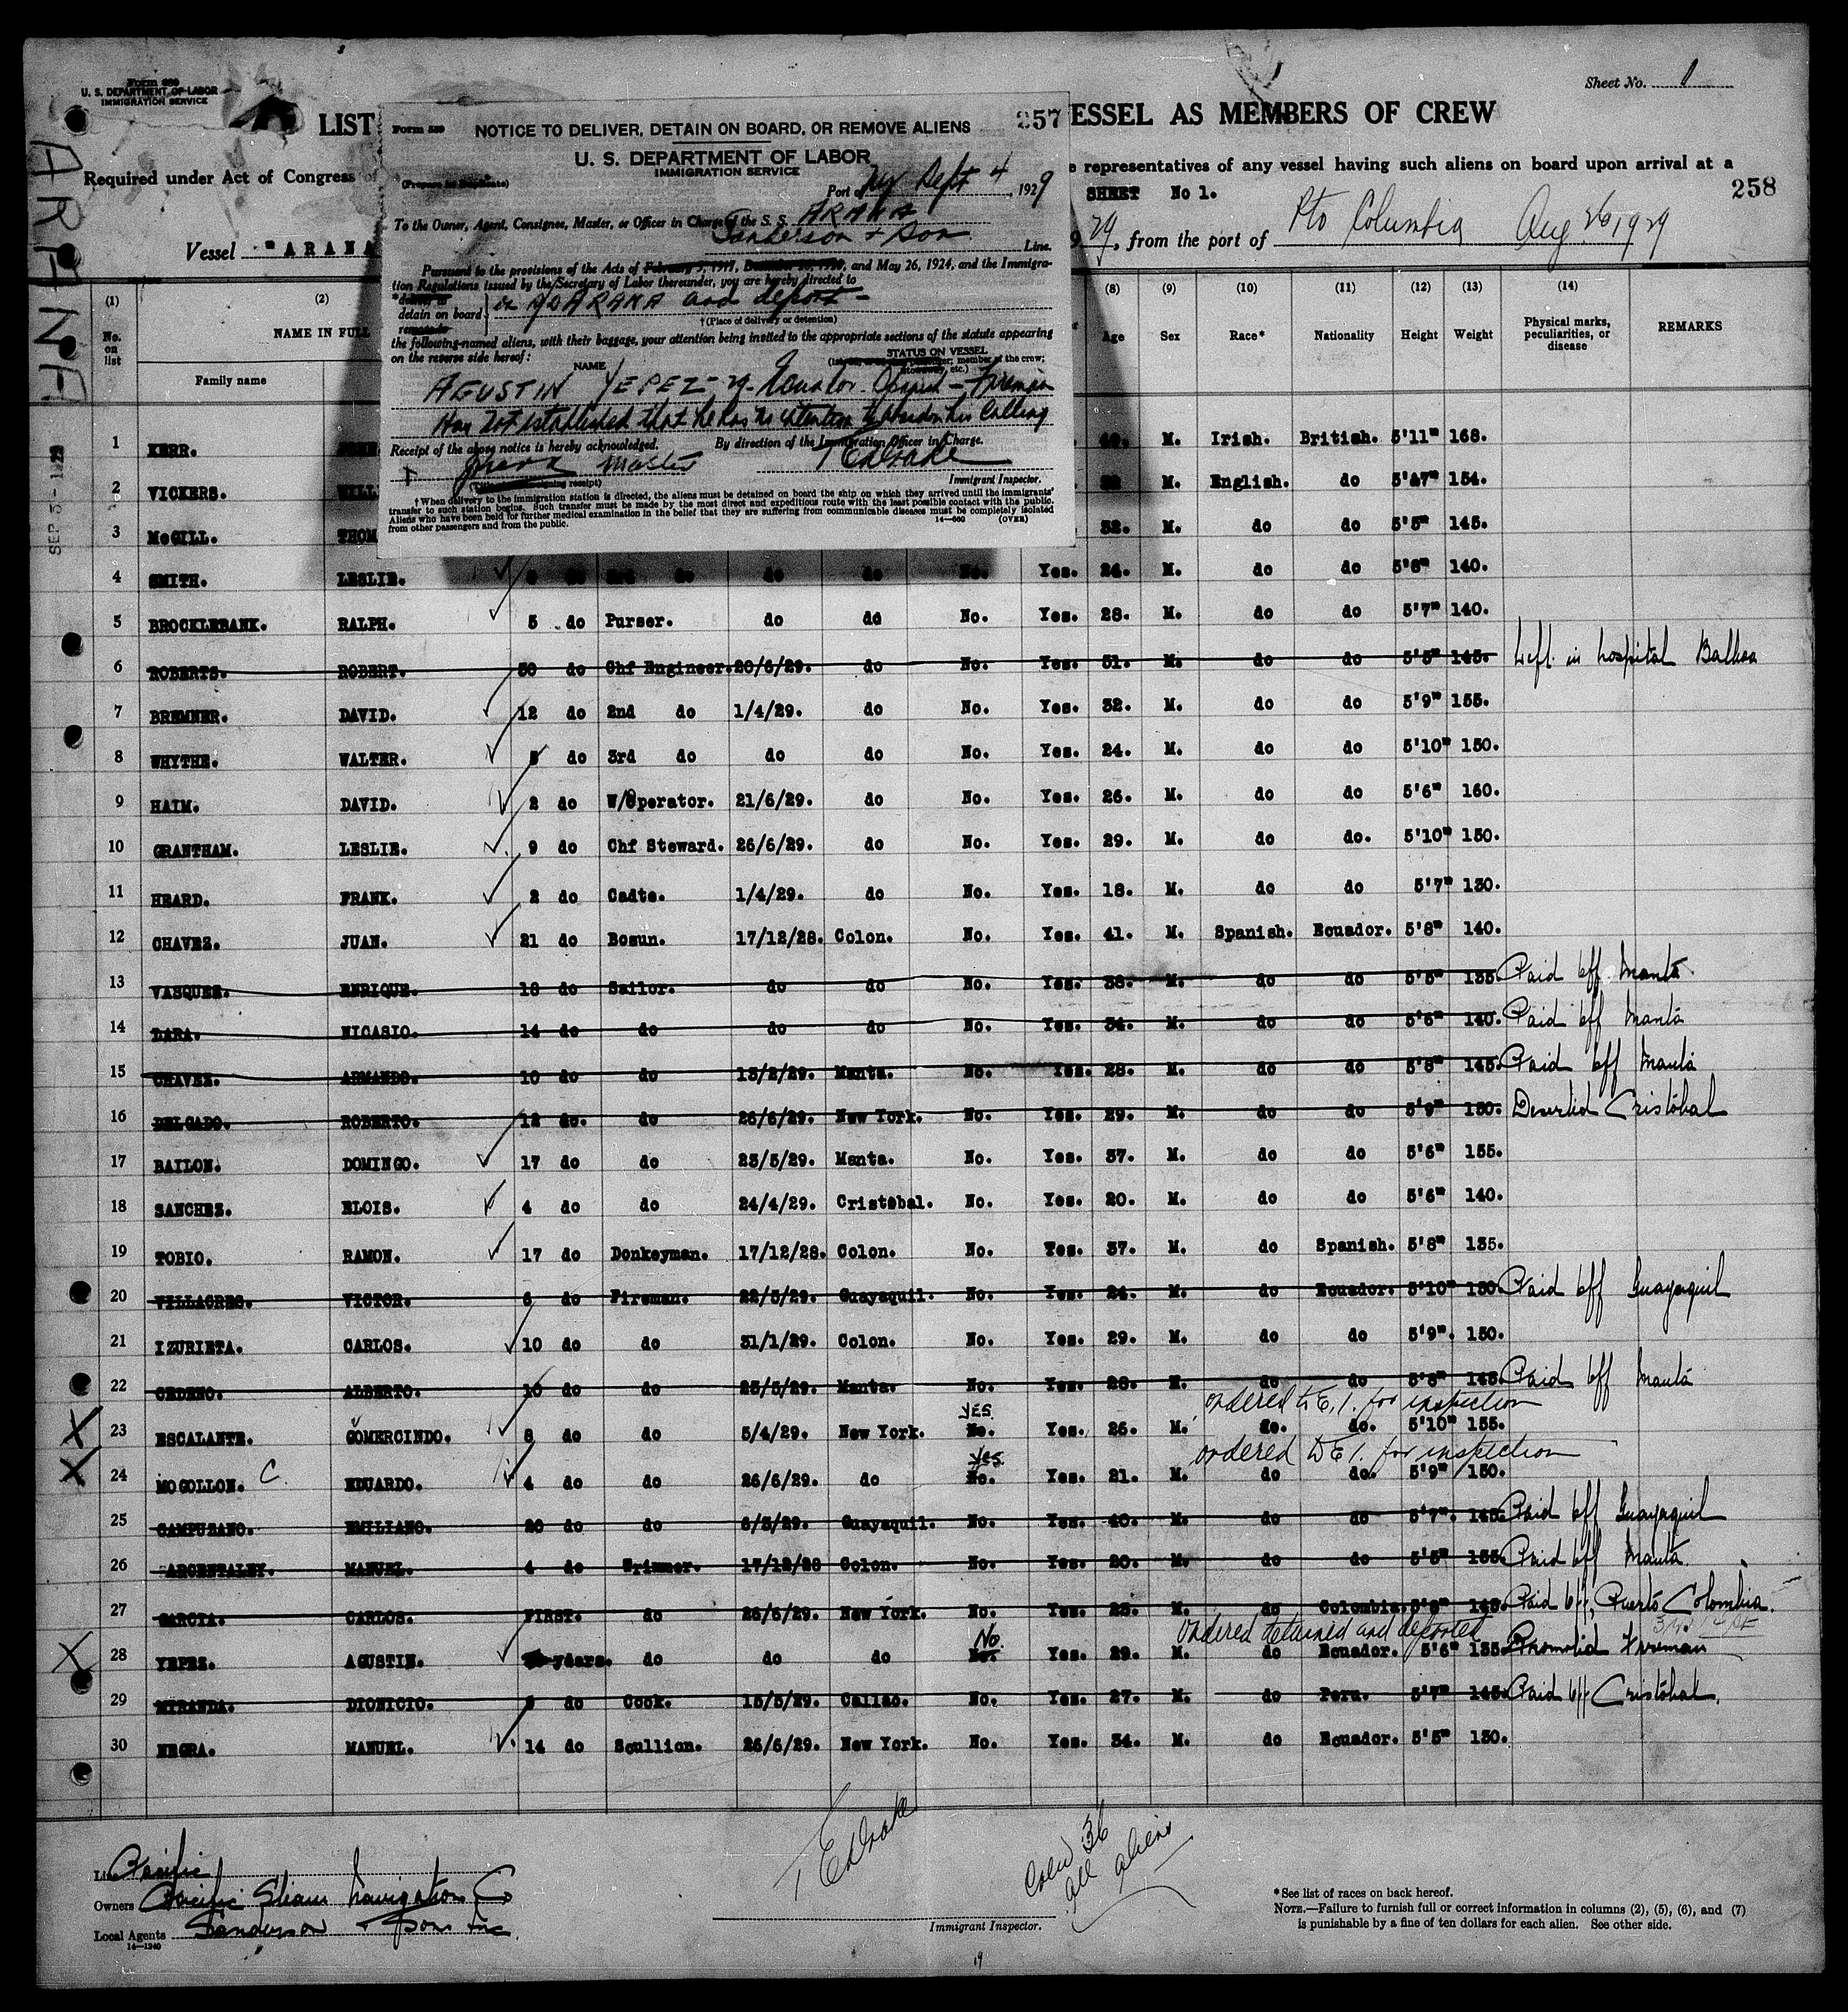 Form 680
U. S. DEPARTMENT OF LABOR
IMMIGRATION SERVICE
Sheet No. 1
LIST
ESSEL AS MEMBERS OF CREW
Required under Act of Congress of
e representatives of any vessel having such aliens on board upon arrival at a
SHEET No 1.
258
Vessel "ARANA
29, from the port of Pto Columbia Aug 26, 1929
ARANA
SEP 3 - 1929
NOTICE TO DELIVER, DETAIN ON BOARD, OR REMOVE ALIENS
257
U. S. DEPARTMENT OF LABOR
IMMIGRATION SERVICE
(Prepare in Duplicate)
Port of NY Sept 4, 1929
To the Owner, Agent, Consignee, Master, or Officer in Charge of the S. S. ARANA
Sanderson & Son Line.
Pursuant to the provisions of the Acts of February 5, 1917, December 26, 1920, and May 26, 1924, and the Immigra-
tion Regulations issued by the Secretary of Labor thereunder, you are hereby directed to
*deliver to
detain on board
remove to
ARANA and deport -
†(Place of delivery or detention)
the following-named aliens, with their baggage, your attention being invited to the appropriate sections of the statute appearing
on the reverse side hereof:
NAME
STATUS ON VESSEL
member of the crew;
etc.)
AGUSTIN YEPEZ - 29 - Ecuador - Fireman
Has not established that he has no intention to abandon his calling
Receipt of the above notice is hereby acknowledged.
By direction of the Immigration Officer in Charge.
Master
T E Drake
Immigrant Inspector.
†When delivery to the immigration station is directed, the aliens must be detained on board the ship on which they arrived until the immigrants'
transfer to such station begins. Such transfer must be made by the most direct and expeditious route with the least possible contact with the public.
Aliens who have been held for further medical examination in the belief that they are suffering from communicable diseases must be completely isolated
from other passengers and from the public.
14—660 (OVER)
(1) (2) (8) (9) (10) (11) (12) (13) (14)
No. on list NAME IN FULL Age Sex Race* Nationality Height Weight Physical marks, peculiarities, or disease REMARKS
Family name
1 KERR. M. Irish. British. 5'11" 168.
2 VICKERS. WILL M. English. do 5'7" 154.
3 McGILL. THOM 32. M. do do 5'5" 145.
4 SMITH. LESLIE. do 2nd do do do No. Yes. 24. M. do do 5'8" 140.
5 BROCKLEBANK. RALPH. 5 do Purser. do do No. Yes. 28. M. do do 5'7" 140.
6 ROBERTS. ROBERT. 30 do Chf Engineer. 20/6/29. do No. Yes. 51. M. do do 5'5" 145. Left in hospital Balboa
7 BREMNER. DAVID. 12 do 2nd do 1/4/29. do No. Yes. 32. M. do do 5'9" 155.
8 WHYTHE. WALTER. 5 do 3rd do do do No. Yes. 24. M. do do 5'10" 150.
9 HAIM. DAVID. 2 do W/Operator. 21/6/29. do No. Yes. 26. M. do do 5'6" 160.
10 GRANTHAM. LESLIE. 9 do Chf Steward. 26/6/29. do No. Yes. 29. M. do do. 5'10" 150.
11 HEARD. FRANK. 2 do Cadte. 1/4/29. do No. Yes. 18. M. do do 5'7" 130.
12 CHAVEZ. JUAN. 21 do Bosun. 17/12/28. Colon. No. Yes. 41. M. Spanish. Ecuador. 5'8" 140.
13 VASQUEZ. ENRIQUE. 18 do Sailor. do do No. Yes. 38. M. do do 5'5" 135. Paid off Manta
14 LARA. NICASIO. 14 do do do do No. Yes. 34. M. do do 5'6" 140. Paid off Manta
15 CHAVEZ. ARMANDO. 10 do do 13/2/29. Manta. No. Yes. 28. M. do do 5'8" 145. Paid off Manta
16 DELGADO. ROBERTO. 12 do. do 26/6/29. New York. No. Yes. 29. M. do do 5'9" 150. Deserted Cristobal
17 BAILON. DOMINGO. 17 do do 23/5/29. Manta. No. Yes. 37. M. do do 5'6" 155.
18 SANCHEZ. ELOIS. 4 do do 24/4/29. Cristobal. No. Yes. 20. M. do do 5'6" 140.
19 TOBIO. RAMON. 17 do Donkeyman. 17/12/28. Colon. No. Yes. 37. M. do Spanish. 5'8" 135.
20 VILLACRES. VICTOR. 6 do Fireman. 22/5/29. Guayaquil. No. Yes. 24. M. do Ecuador. 5'10" 150 Paid off Guayaquil
21 IZURIETA. CARLOS. 10 do do 31/1/29. Colon. No. Yes. 29. M. do do 5'9". 150.
22 CEDENO. ALBERTO. 10 do do 23/5/29. Manta. No. Yes. 28. M. do do 5'8" 145. Paid off Manta
ordered to E.I. for inspection
23 ESCALANTE. GOMERCINDO. 8 do do 5/4/29. New York. No. YES Yes. 26. M. do. do. 5'10" 155.
ordered to E I. for inspection
24 MOGOLLON. C. EDUARDO. 4 do do 26/6/29. do No. Yes. Yes. 21. M. do do. 5'9" 150.
25 CAMPUZANO. EMILIANO. 20 do do 6/3/29. Guayaquil. No. Yes. 40. M. do do 5'7". 145. Paid off Guayaquil
26 ARGENTALEY. MANUEL. 4 do Trimmer. 17/12/28 Colon. No. Yes. 20. M. do do 5'5" 135. Paid off Manta
27 GARCIA. CARLOS. FIRST. do 26/6/29. New York. No. Yes. 23. M. do Colombia. 5'8" 145. Paid off, Puerto Colombia.
ordered detained and deported
28 YEPEZ. AGUSTIN. years. do do do No Yes. 29. M. do Ecuador. 5'6" 155 Promoted Fireman
29 MIRANDA. DIONICIO. do Cook. 15/5/29. Callao. No. Yes. 27. M. do Peru. 5'7" 145. Paid off Cristobal.
30 NEGRA. MANUEL. 14 do Scullion. 26/6/29. New York. No. Yes. 34. M. do Ecuador. 5'5" 130.
T E Drake
Crew 36
all aliens
Line Pacific
Owners Pacific Steam Navigation Co
Local Agents Sanderson & Son Inc
14—1240
Immigrant Inspector.
*See list of races on back hereof.
NOTE.—Failure to furnish full or correct information in columns (2), (5), (6), and (7)
is punishable by a fine of ten dollars for each alien. See other side.
19